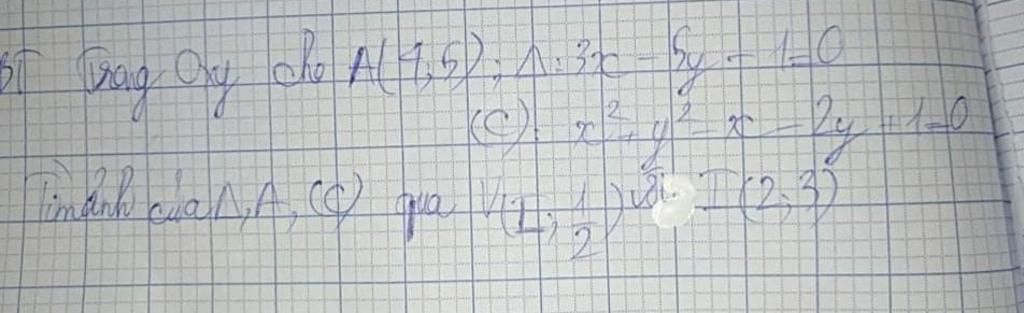 BT Trong Oxy cho A(4,5); Δ: 3x - 5y - 1=0
(C): x² + y² - x - 2y + 1=0
Tìm ảnh của Δ, A, (C) qua V(I; 1/2) với I(2;3)